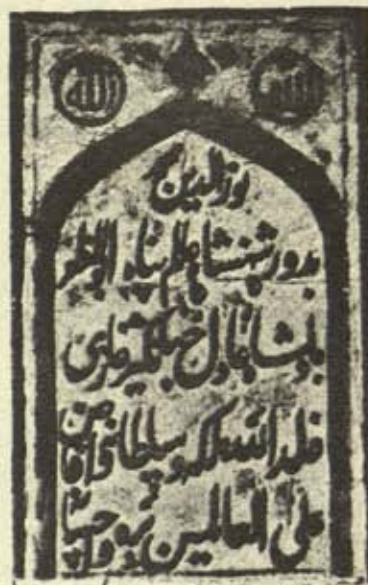 الله الله
نورالدین
بدور شهنشاه عالم پناه ابوالمظفر
بادشاه عادل جهانگیر غازی
خلد الله ملکه و سلطانه وافاض
علی العالمین بره و احسانه